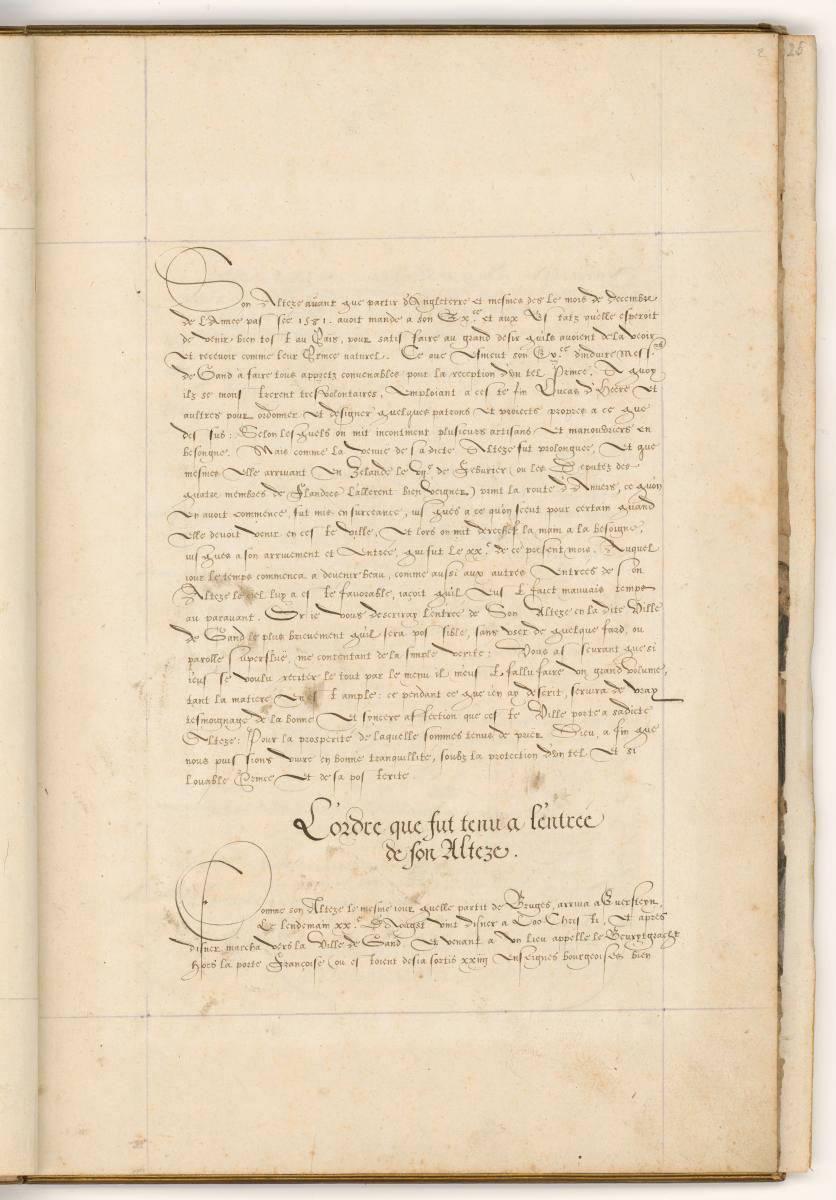 2 25
Son Alteze auant que partir d'Angleterre et mesmes des le mois de decembre
de l'Annee passee 1581. auoit mande a son Ex.ce et aux Estatz quelle esperoit
de venir bien tost au Pais, pour satisfaire au grand desir quils auoient de la veoir
et receuoir comme leur Prince naturel. Ce que esmeut son Ex.ce d'induire Mess.rs
de Gand a faire tous appretz conuenables pour la reception d'vn tel Prince. A quoy
ilz se monstrerent tresvolontaires, Emploiant a ceste fin Lucas d'Heere et
aultres pour ordonner et designer quelques patrons et proiects propres a ce que
dessus: Selon lesquels on mit incontinent plusieurs artisans et manouuriers en
besongne. Mais comme la venue de sadicte Alteze fut prolonguee, et que
mesmes elle arriuant en Zelande le de Feburier (ou les Deputez des
quatre membres de Flandres l'allerent bienveigner) print la route d'Anuers, ce quon
en auoit commence, fut mis en surceance, iusques a ce quon sceut pour certain quand
elle deuoit venir en ceste ville, et lors on mit derechef la main a la besoigne,
iusques a son arriuement et Entree, qui fut le xx.e de ce present mois. Auquel
iour le temps commenca a deuenir beau, comme aussi aux autres Entrees de son
Alteze le ciel luy a este fauorable, iacoit quil eust faict mauuais temps
au parauant. Or ie vous descriray l'entree de Son Alteze en la dite Ville
de Gand le plus brieuement quil sera possible, sans vser de quelque fard, ou
parolle superflue, me contentant de la simple verite: Vous asseurant que si
ieus se voulu reciter le tout par le menu il m'eust fallu faire vn grand volume,
tant la matiere en est ample: ce pendant ce que i'en ay descrit, seruira de vray
tesmoignage de la bonne et syncere affection que ceste Ville porte a sadicte
Alteze: Pour la prosperite de laquelle sommes tenus de prier Dieu, a fin que
nous puissions viure en bonne tranquillite, soubz la protection d'vn tel et si
louable Prince et de sa posterite.
L'ordre que fut tenu a l'entree
de son Alteze.
Comme son Alteze le mesme iour quelle partit de Bruges, arriua a
Le lendemain xx.e D'Aougst vint disner a Loo Christi, et apres
disner marcha vers la Ville de Gand. Et venant a vn lieu appelle le
Hors la porte Françoise (ou estoient desia sortis xxiiij Enseignes bourgeoises bien